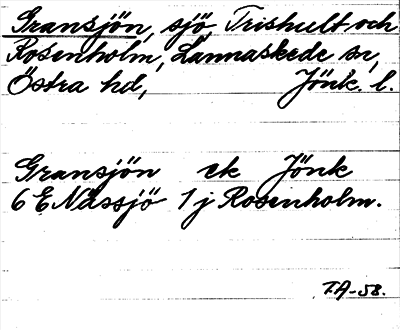 Gransjön, sjö, Trishult och
Rosenholm, Lannaskede sn,
Östra hd, Jönk. l.
Gransjön ek Jönk
6 E Nässjö 1 j Rosenholm.
T.A-58.